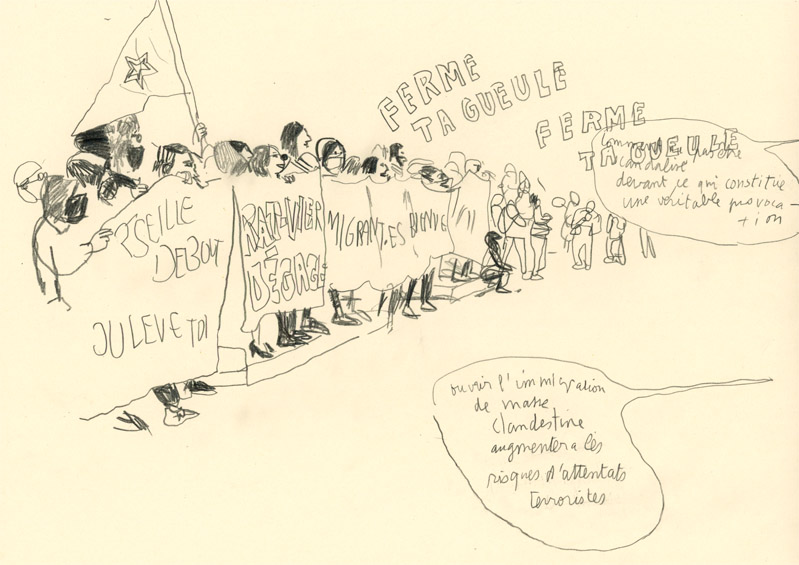 FERME
TA GUEULE
FERME
TA GUEULE
scandalisé
devant ce qui constitue
une véritable provoca-
tion
SEILLE
DEBOUT
OULEVE TOI
RATIVIER
DÉGAGE
MIGRANT.ES BIENVE
ouvrir l'immigration
de masse
clandestine
augmentera les
risques d'attentats
terroristes